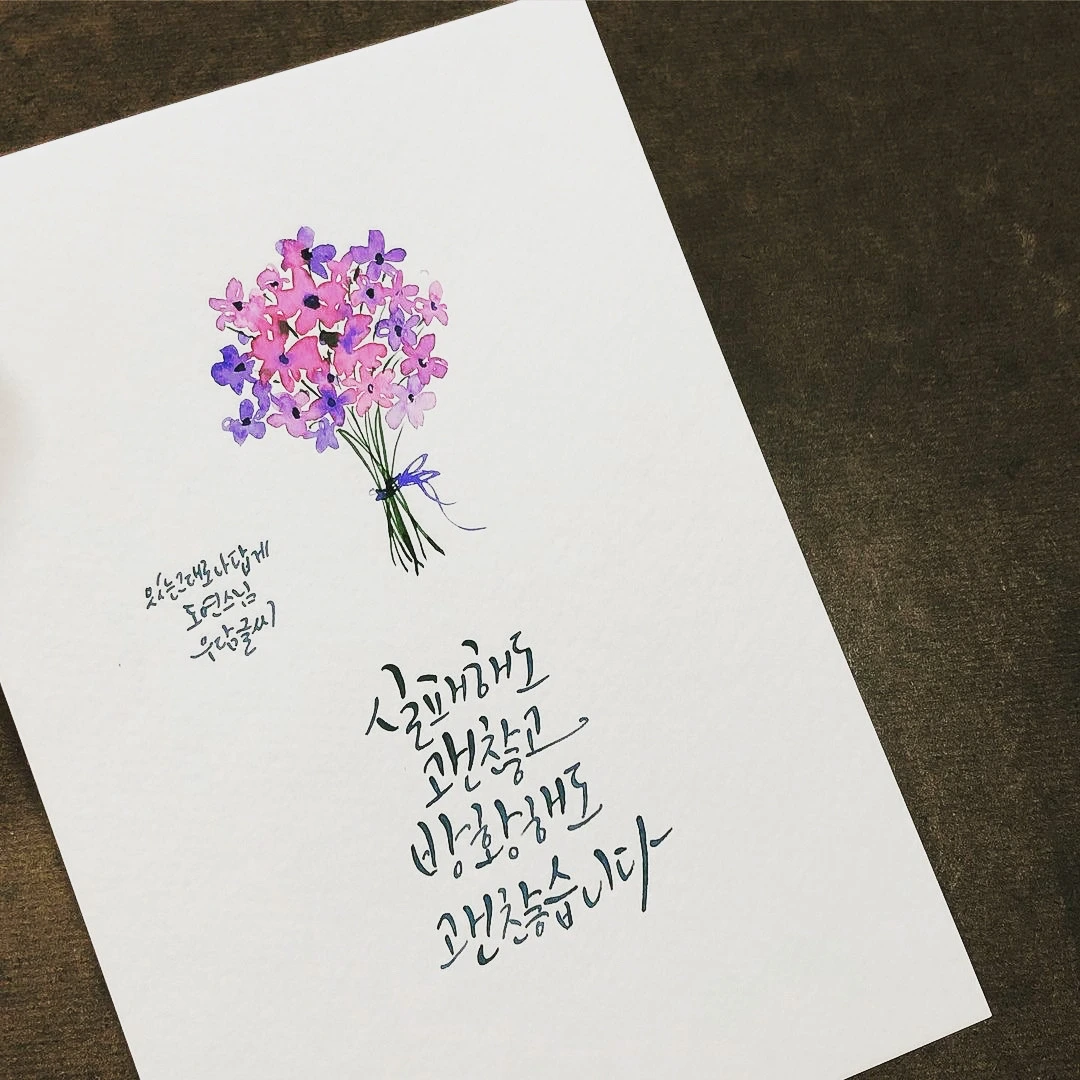 있는그대로나답게
도연스님
우담글씨
실패해도
괜찮고
방황해도
괜찮습니다